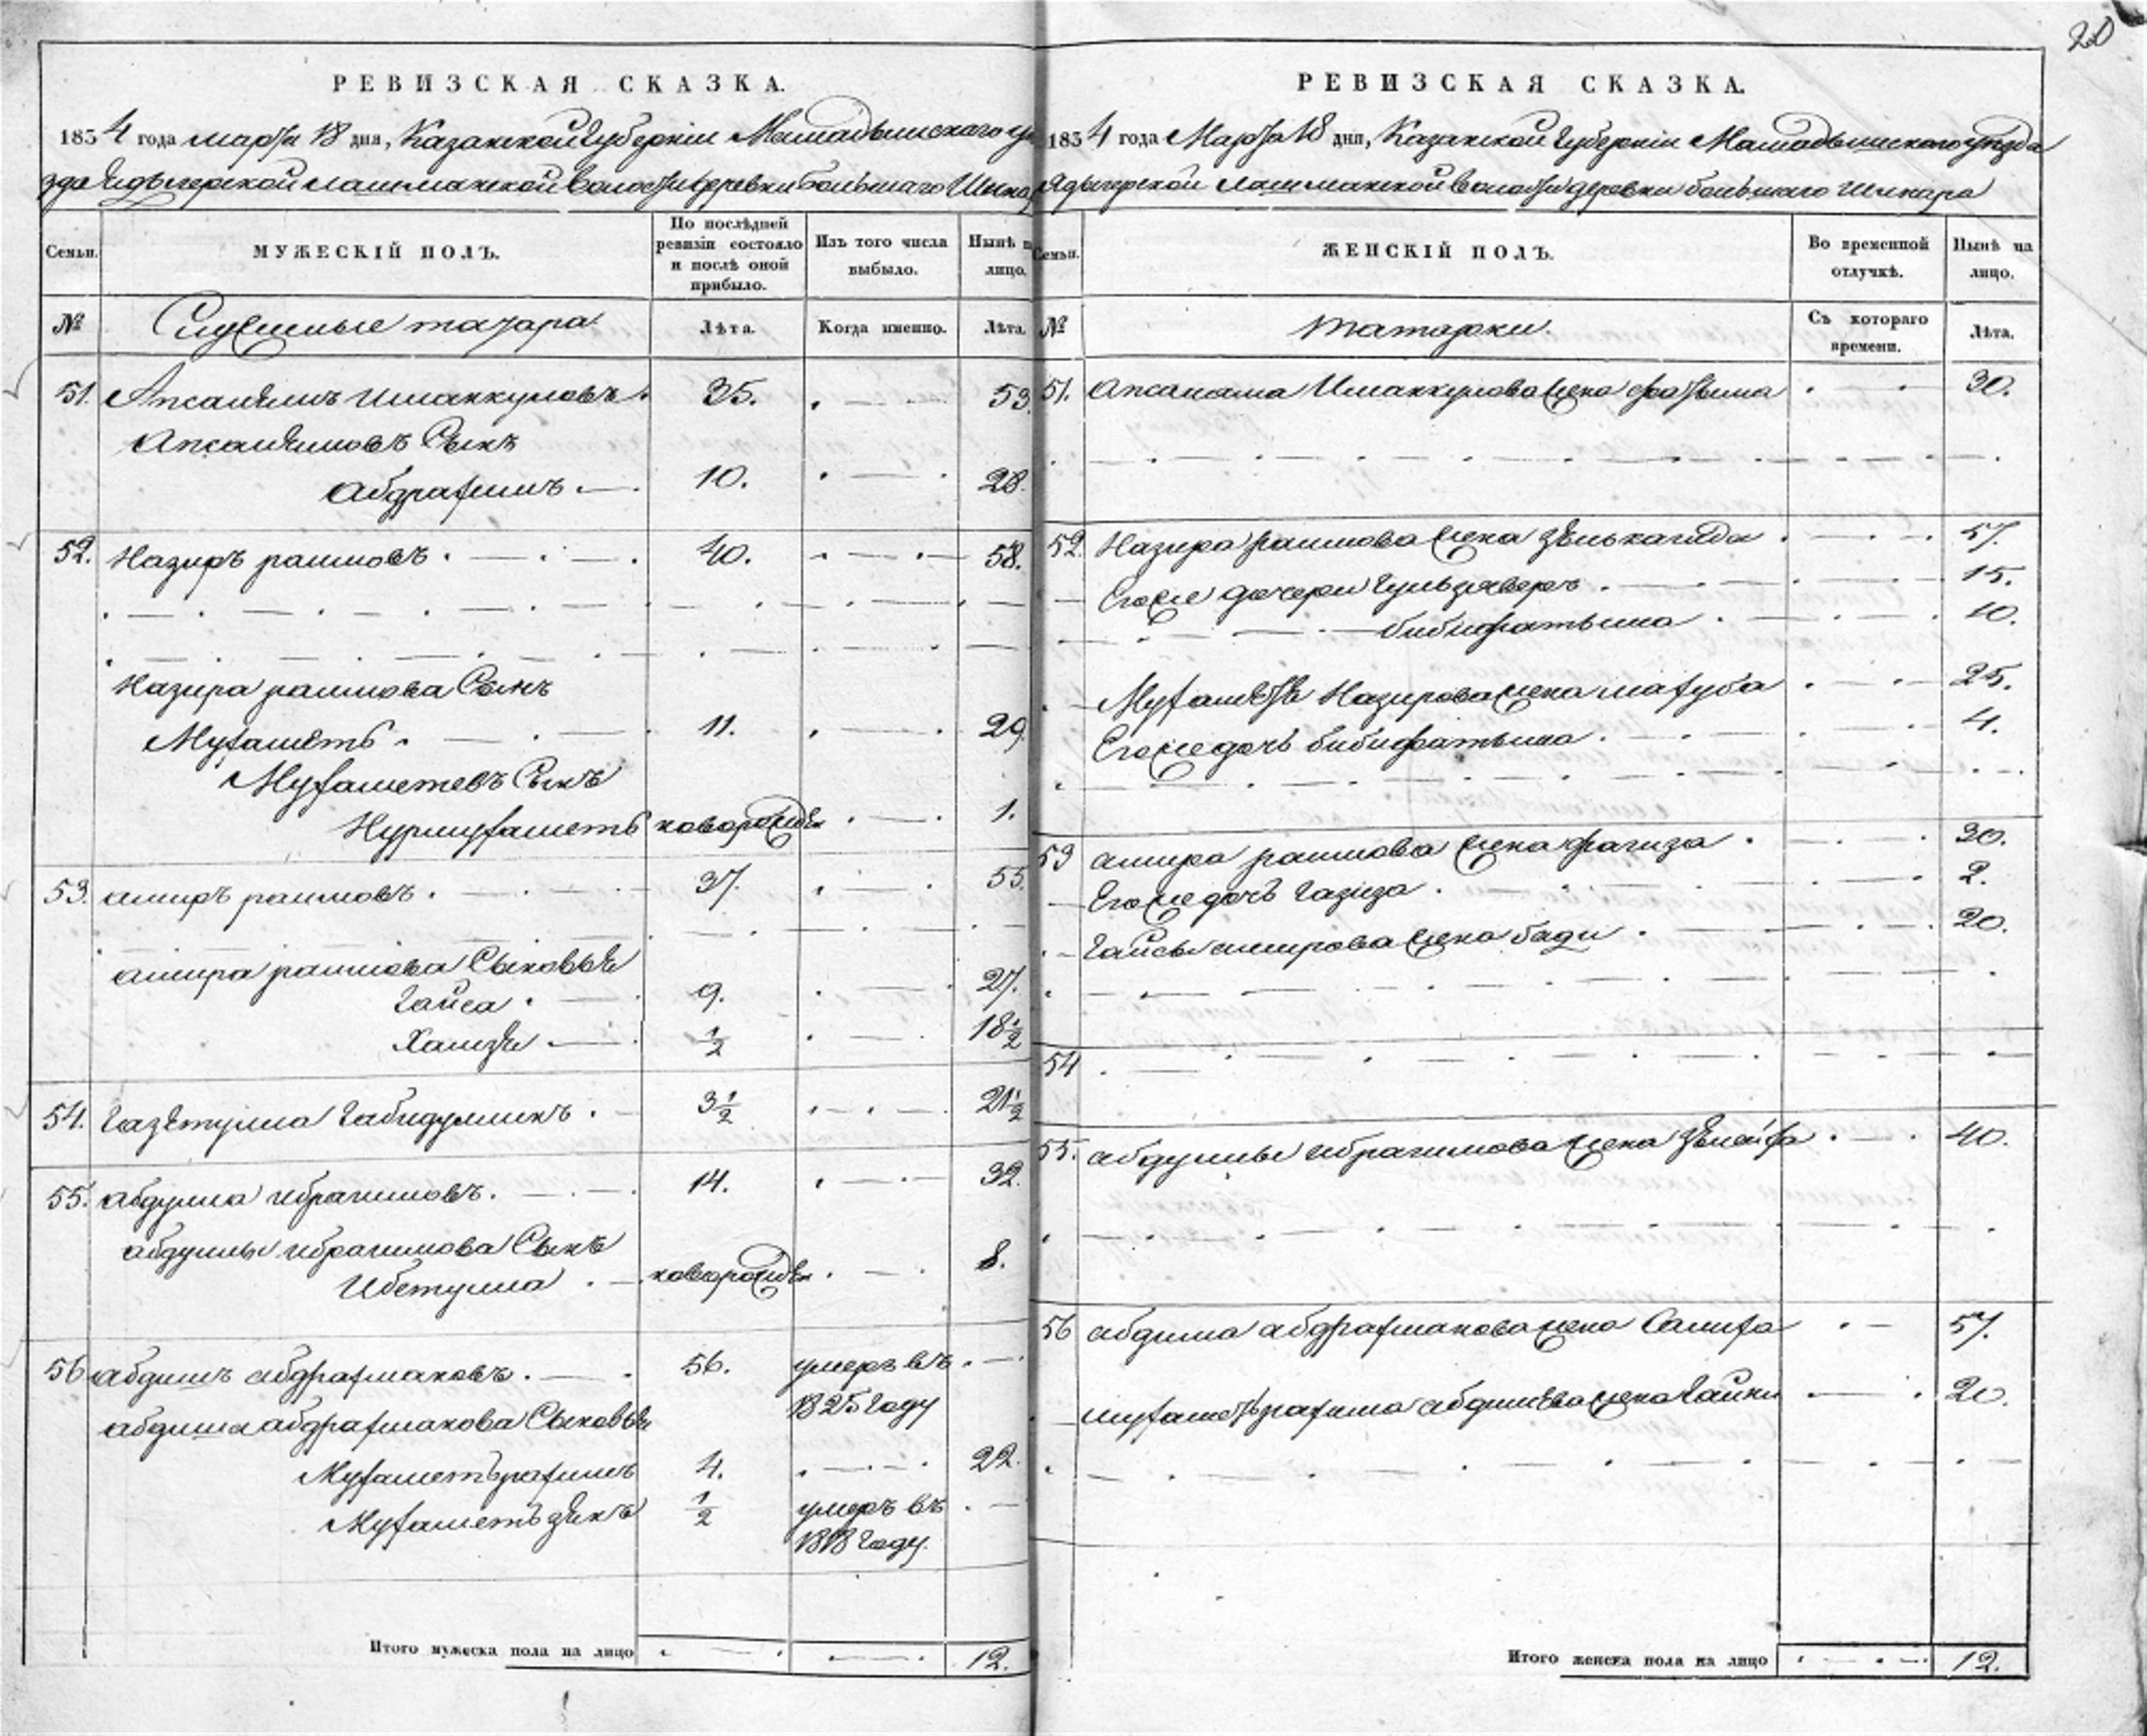 20
РЕВИЗСКАЯ СКАЗКА.
1834 года марта 18 дня, Казанской Губерніи Мамадышскаго уѣ
зда Ядыгерской лашманской волости деревни большаго Шинар
Семьи.
МУЖЕСКІЙ ПОЛЪ.
По послѣдней ревизіи состояло и послѣ оной прибыло.
Изъ того числа выбыло.
Нынѣ на лицо.
№
Служилые татара
Лѣта.
Когда именно.
Лѣта.
51. Апсалямъ Иманкуловъ. 35. 53.
Апсалямовъ Сынъ
Абдрахимъ 10. 28.
52. Назиръ раимовъ. 40. 58.
Назира раимова Сынъ
Мухаметъ. 11. 29
Мухаметевъ Сынъ
Нурмухаметъ новорожден 1.
53. амиръ раимовъ. 37. 55.
амира раимова Сыновья
Гайса. 9. 27.
Хамзя 1/2 18 1/2
54. Газетулла Габидуллинъ. 3 1/2 21 1/2
55. абдулла ибрагимовъ. 14. 32.
абдуллы ибрагимова Сынъ
Ибетулла. новорожден. 8.
56 абдишъ абдрахмановъ. 56. умеръ въ
1825 Году
абдиша абдрахманова Сыновья
Мухаметърахимъ 4. 22.
Мухаметъзянъ 1/2 умеръ въ
1818 Году.
Итого мужеска пола на лицо 12.
РЕВИЗСКАЯ СКАЗКА.
1834 года Марта 18 дня, Казанской Губерніи Мамадышскаго уѣзда
Ядыгерской лашманской волости деревни большаго Шинара
Семьи.
ЖЕНСКІЙ ПОЛЪ.
Во временной отлучкѣ.
Нынѣ на лицо.
№
Татарки.
Съ котораго времени.
Лѣта.
51. Апсаляма Иманкулова жена фатыма 30.
52. Назира раимова жена 57.
Егоже дочери Гульзяверъ. 15.
бибифатьима 10.
Мухаметя Назирова жена махуба 25.
Егоже дочь бибифатьима. 4.
53 амира раимова жена фагиза 30.
Егоже дочь Газиза. 2.
Гайсы амирова жена бади. 20.
54
55. абдуллы ибрагимова жена Зюлейха. 40.
56 абдиша абдрахманова жена Салиха 57.
мухаметърахима абдишева жена Гайни 20.
Итого женска пола на лицо 12.